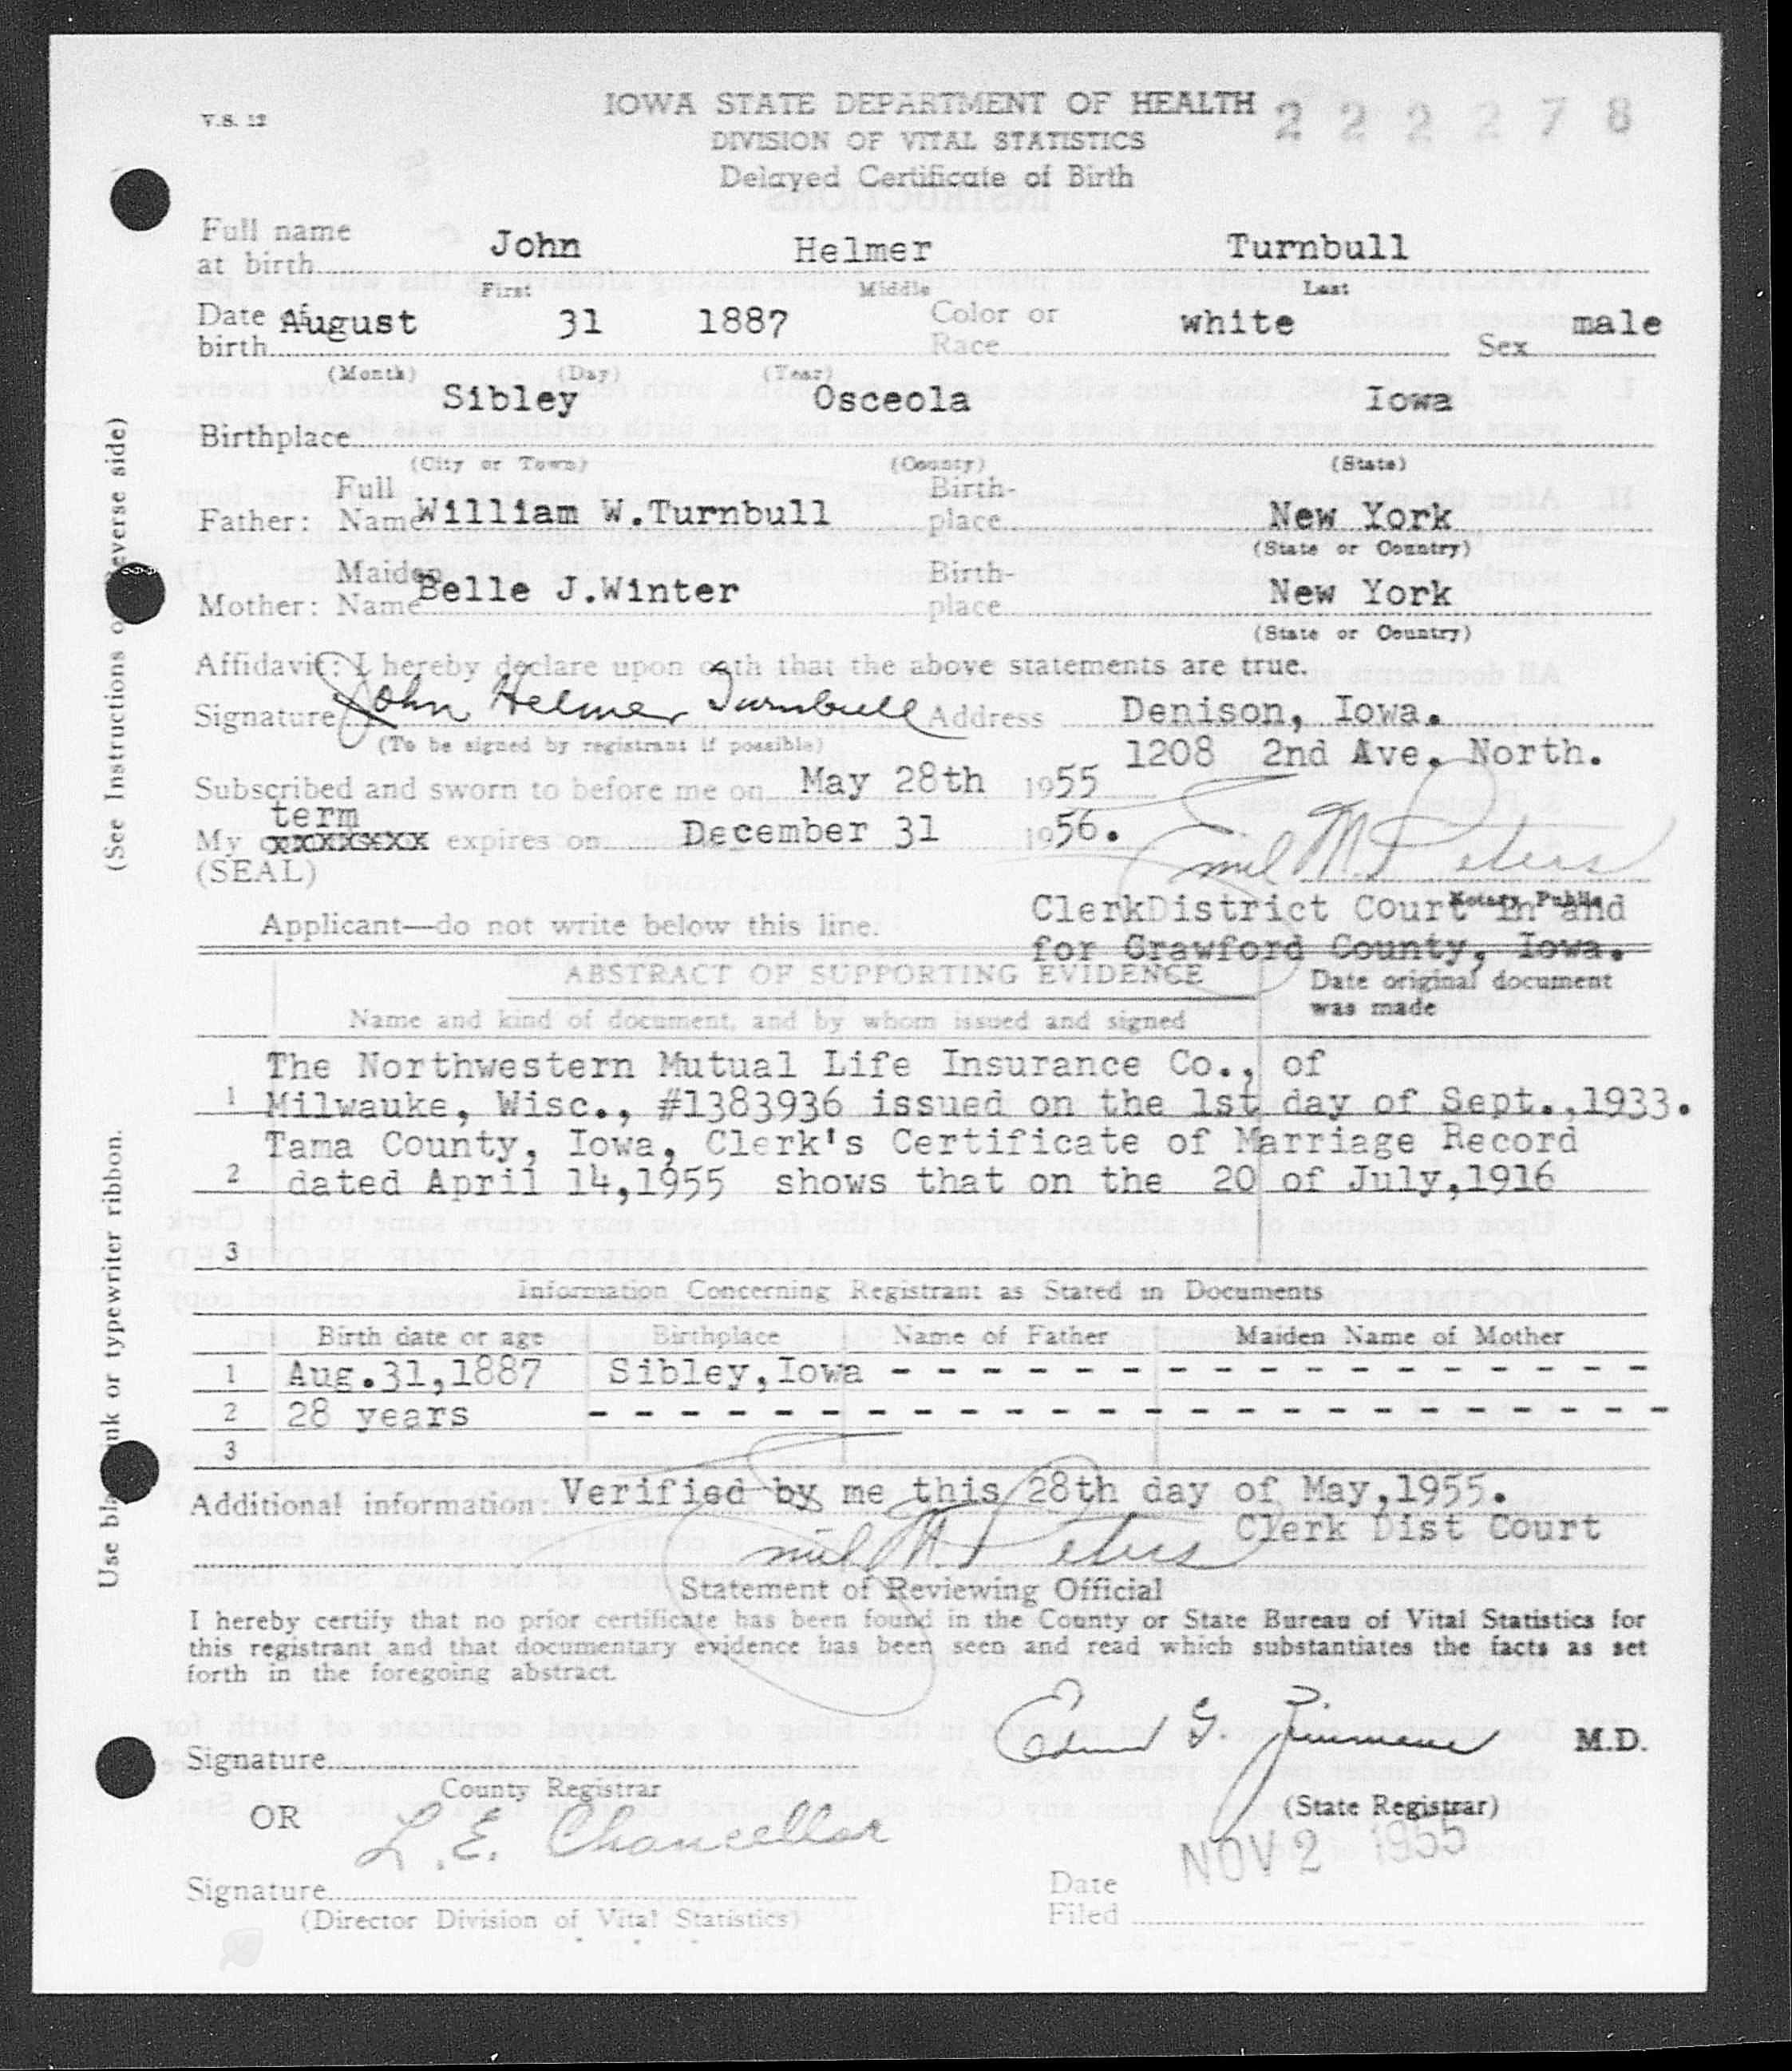 V.S. 12
IOWA STATE DEPARTMENT OF HEALTH 222278
DIVISION OF VITAL STATISTICS
Delayed Certificate of Birth
Full name
at birth John Helmer Turnbull
First Middle Last
Date of birth August 31 1887 Color or Race white Sex male
(Month) (Day) (Year)
Birthplace Sibley Osceola Iowa
(City or Town) (County) (State)
Father: Full Name William W.Turnbull Birth-place New York
(State or Country)
Mother: Maiden Name Belle J.Winter Birth-place New York
(State or Country)
Affidavit: I hereby declare upon oath that the above statements are true.
Signature John Helmer Turnbull Address Denison, Iowa.
(To be signed by registrant if possible)
1208 2nd Ave. North.
Subscribed and sworn to before me on May 28th 1955
term
My xxxxxxxx expires on December 31 1956. Emil M. Peters
(SEAL)
Notary Public
ClerkDistrict Court In and
Applicant—do not write below this line.
for Crawford County, Iowa.
ABSTRACT OF SUPPORTING EVIDENCE
Name and kind of document, and by whom issued and signed
Date original document
was made
The Northwestern Mutual Life Insurance Co., of
1 Milwauke, Wisc., #1383936 issued on the 1st day of Sept.,1933.
Tama County, Iowa, Clerk's Certificate of Marriage Record
2 dated April 14,1955 shows that on the 20 of July,1916
3
Information Concerning Registrant as Stated in Documents
Birth date or age Birthplace Name of Father Maiden Name of Mother
1 Aug.31,1887 Sibley,Iowa - - - - - - - - - - - - - - - - - -
2 28 years - - - - - - - - - - - - - - - - - - - - - - - - - -
3
Additional information: Verified by me this 28th day of May,1955.
Emil M. Peters Clerk Dist Court
Statement of Reviewing Official
I hereby certify that no prior certificate has been found in the County or State Bureau of Vital Statistics for
this registrant and that documentary evidence has been seen and read which substantiates the facts as set
forth in the foregoing abstract.
Signature
County Registrar
M.D.
(State Registrar)
OR
L. E. Chancellor
NOV 2 1955
Signature
(Director Division of Vital Statistics)
Date
Filed
(See Instructions on reverse side)
Use black ink or typewriter ribbon.